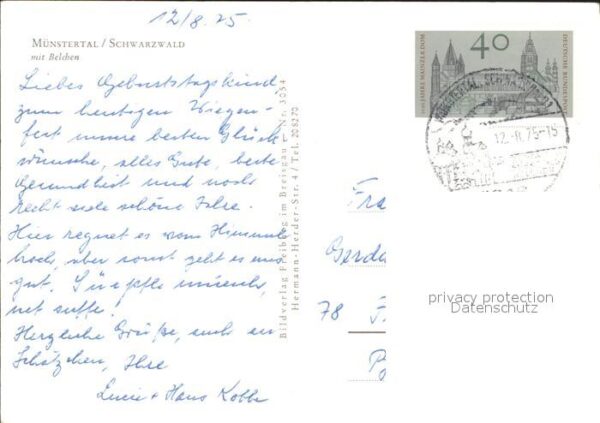 12/8.75.
MÜNSTERTAL / SCHWARZWALD
mit Belchen
Liebes Geburtstagskind,
zum heutigen Wiegen-
fest unsre besten Glück
wünsche, alles Gute, beste
Gesundheit und noch
recht viele schöne Jahre.
Hier regnet es vom Himmel
hoch, aber sonst geht es uns
gut.
Herzliche Grüße, auch an
Schätzchen, Ihre
Lucie + Hans
Bildverlag Freiburg im Breisgau · Nr. 3054
Hermann-Herder-Str. 4 / Tel. 20 52 70
40
1000 JAHRE MAINZER DOM
DEUTSCHE BUNDESPOST
MÜNSTERTAL, SCHWARZWALD
12.-8.75-15
Fra
Gerda
78 F
privacy protection
Datenschutz